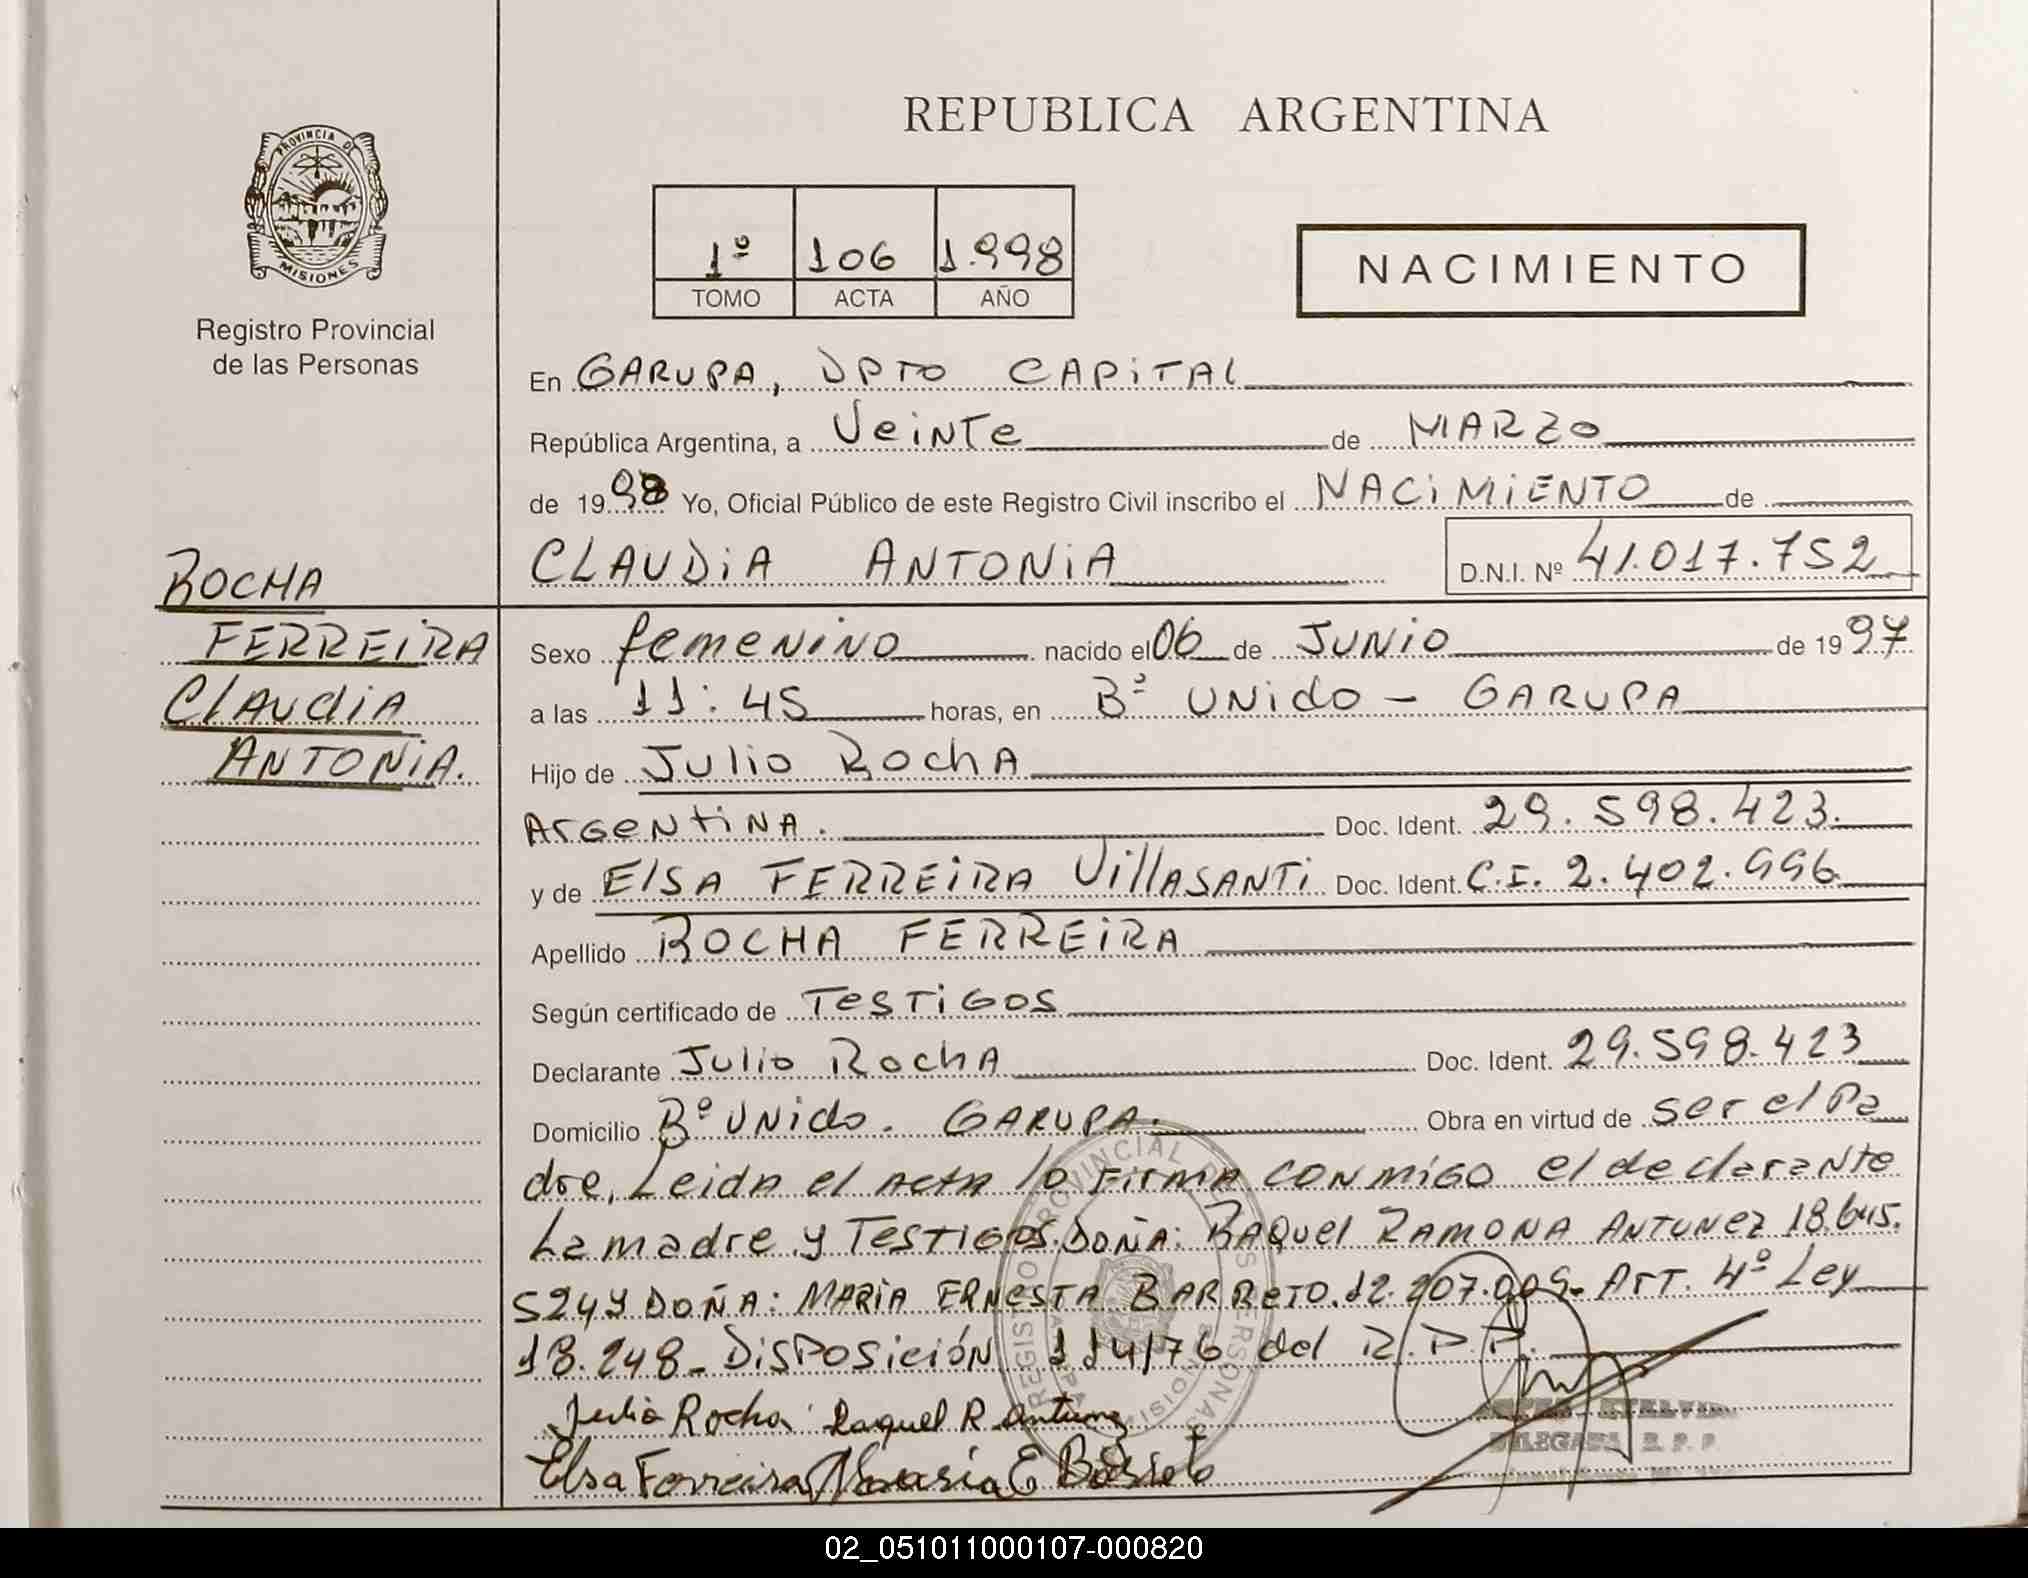 REPUBLICA ARGENTINA
PROVINCIA DE
MISIONES
Registro Provincial
de las Personas
1º 106 1.998
TOMO ACTA AÑO
NACIMIENTO
En GARUPA, DPTO CAPITAL
República Argentina, a Veinte de MARZO
de 1998 Yo, Oficial Público de este Registro Civil inscribo el NACIMIENTO de
CLAUDIA ANTONIA D.N.I. Nº 41.017.752
ROCHA
FERREIRA
CLAUDIA
ANTONIA.
Sexo femenino nacido el 06 de JUNIO de 1997
a las 11:45 horas, en Bº UNIDO - GARUPA
Hijo de Julio RochA
ArGeNtiNA. Doc. Ident. 29.598.423.
y de ElSA FERREIRA VillASANTi Doc. Ident. C.I. 2.402.996
Apellido ROCHA FERREIRA
Según certificado de TesTiGOS
Declarante Julio RochA Doc. Ident. 29.598.423
Domicilio Bº UNido. GARUPA. Obra en virtud de ser el Pa
dre, Leida el Acta lo Firma conmigo el declarante
La madre y Testigos. DOÑA: RAQuel RAMONA ANTUNez 18.645.
524 y DOÑA: MARIA ERNESTA BARReTO. 12.207.009- Art. 4º Ley
18.248- DisPosición 114/76 del R.P.P.
Julio Rocha Raquel R Antunez
Elsa Ferreira Maria E Barreto
REGISTRO PROVINCIAL DE LAS PERSONAS
MISIONES
DELEGADA R. P. P.
02_051011000107-000820